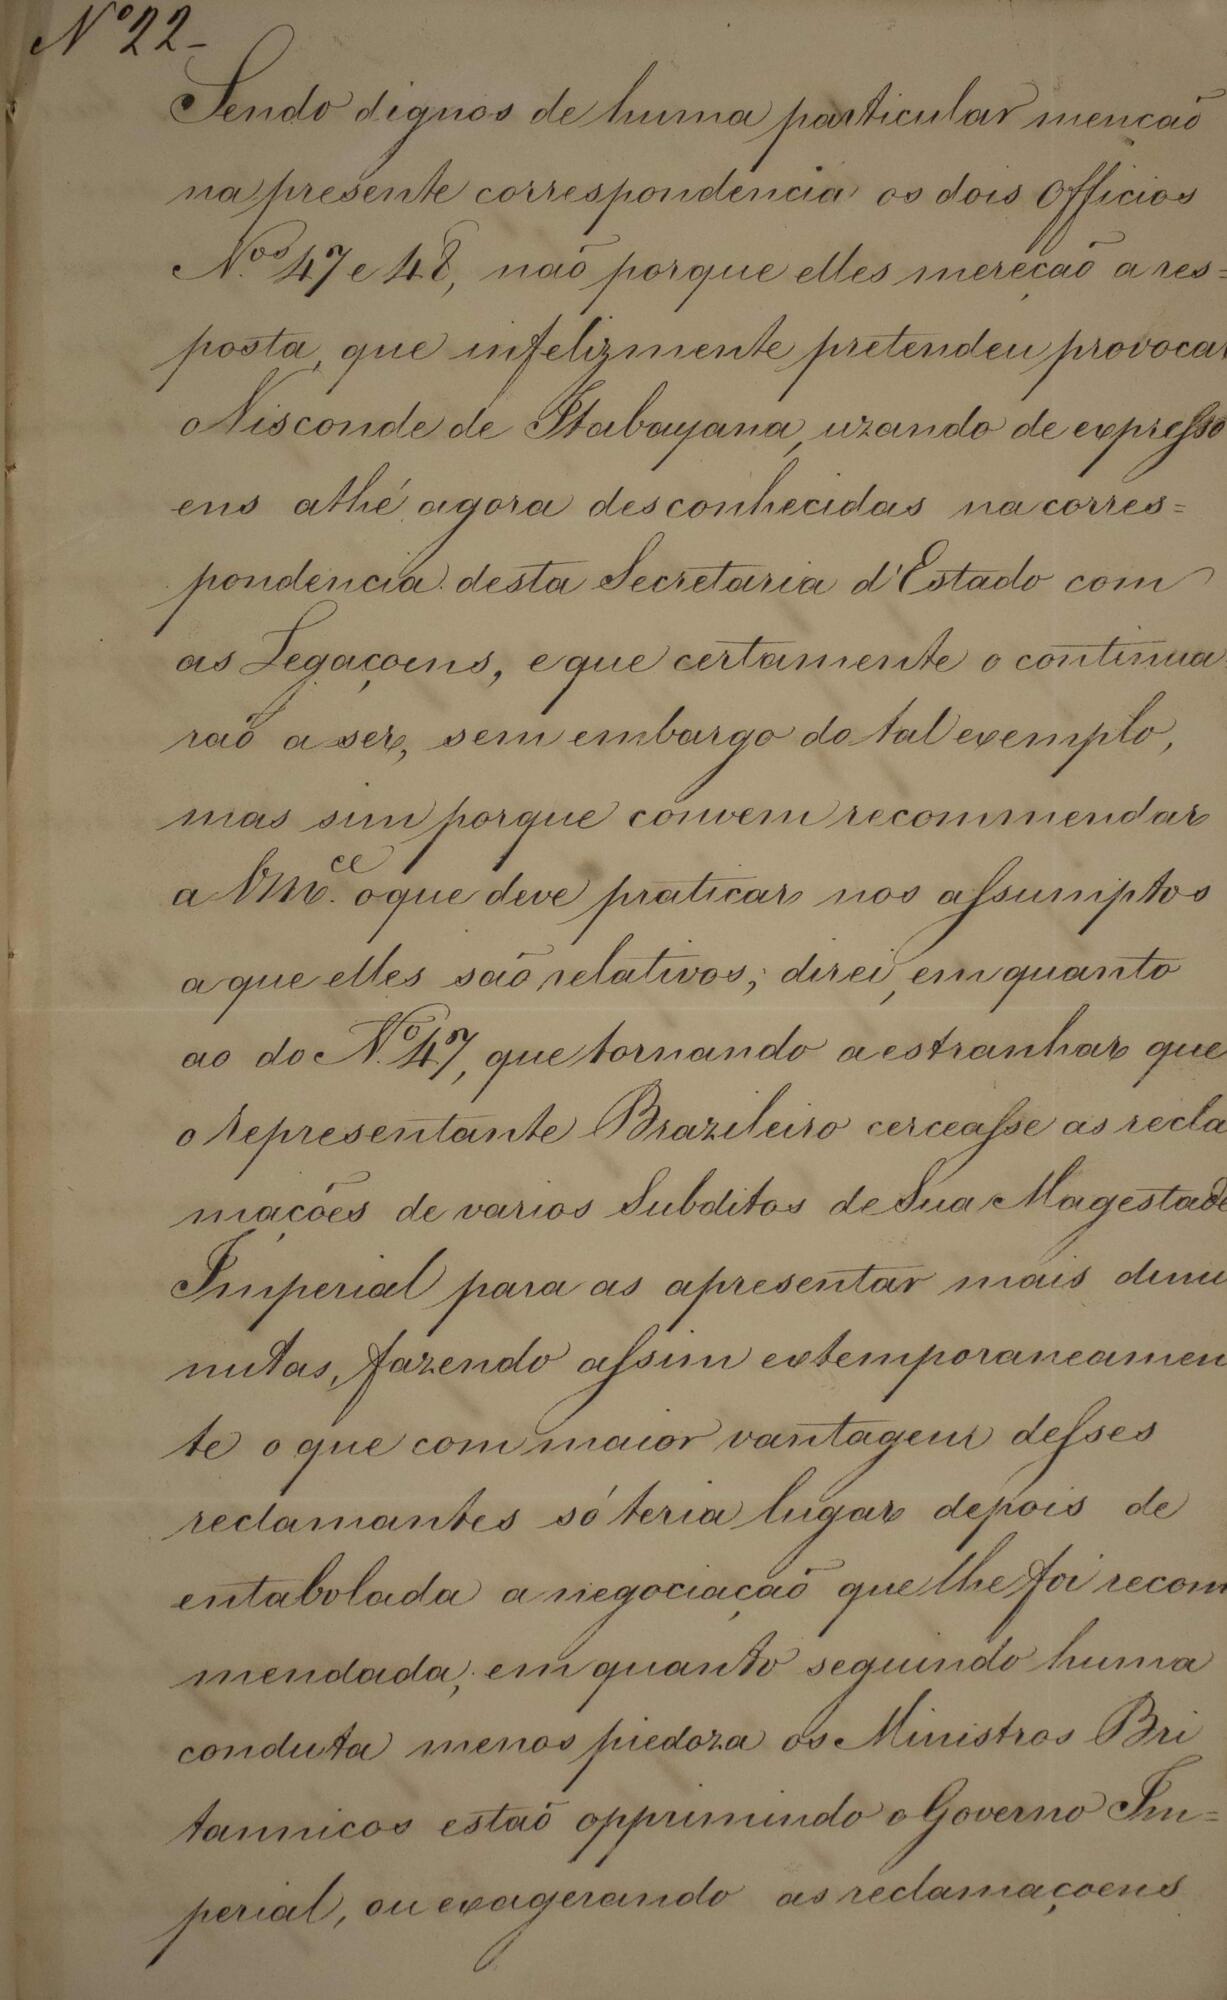 Nº 22-
Sendo dignos de huma particular mencaõ
na presente correspondencia os dois Officios
N.os 47 e 48, naõ porque elles mereçaõ a res=
posta, que infelizmente pretendeu provocar
o Visconde de Itabayana, uzando de expresso
ens athé agora desconhecidas na corres=
pondencia desta Secretaria d'Estado com
as Legaçoens, e que certamente o continua
raõ a ser, sem embargo do tal exemplo,
mas sim porque convem recommendar
a Vm.ce o que deve praticar nos assumptos
a que elles saõ relativos; direi, em quanto
ao do N.º 47, que tornando a estranhar que
o representante Brazileiro cerceasse as recla
mações de varios Subditos de Sua Magestade
Imperial para as apresentar mais dimi
nutas, fazendo assim extemporaneamen
te o que com maior vantagem desses
reclamantes só teria lugar depois de
entabolada a negociaçaõ que lhe foi recom
mendada; em quanto seguindo huma
conduta menos piedoza os Ministros Bri
tannicos estaõ opprimindo o Governo Im=
perial, ou exagerando as reclamaçoens